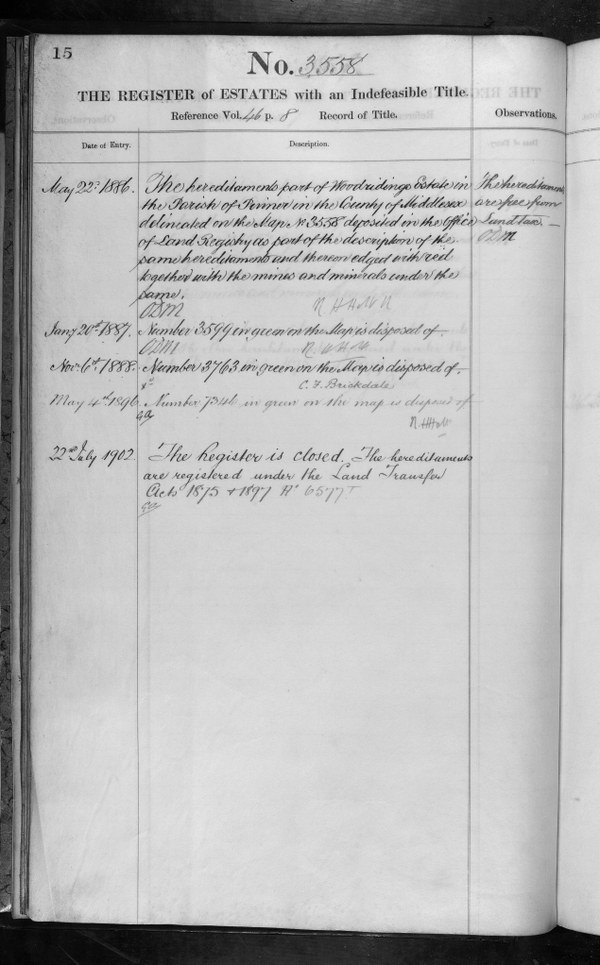 15
No. 3558
THE REGISTER of ESTATES with an Indefeasible Title.
Reference Vol. 46 p. 8 Record of Title.
Observations.
Date of Entry.
Description.
May 22d 1886.
The hereditaments part of Woodridings Estate in
the Parish of Pinner in the County of Middlesex
delineated on the Map No 3558 deposited in the Office
of Land Registry as part of the description of the
same hereditaments and thereon edged with red
together with the mines and minerals under the
same.
The hereditaments
are free from
Land tax.
Jany 20th 1887.
Number 3599 in green on the Map is disposed of
Nov. 6th 1888.
Number 3763 in green on the Map is disposed of.
C. F. Brickdale
May 4th 1896
Number 7346 in green on the map is disposed of
22nd July 1902
The Register is closed. The hereditaments
are registered under the Land Transfer
Acts 1875 & 1897 No 6577